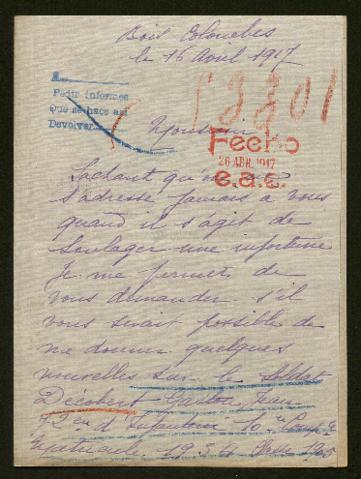 Bois Colombes
le 16 Avril 1917
A
Pedir informes
Que se hace así
Devolver
Monsieur
Fecho
26 ABR. 1917
e.a.c.
Sachant qu'on
s'adresse jamais a vous
quand il s'agit de
soulager une infortune
je me permets de
vous demander s'il
vous serait possible de
me donner quelques
nouvelles sur le Soldat
Decobert Jean
d'Infanterie 10e Comp
Matricule Classe 1905